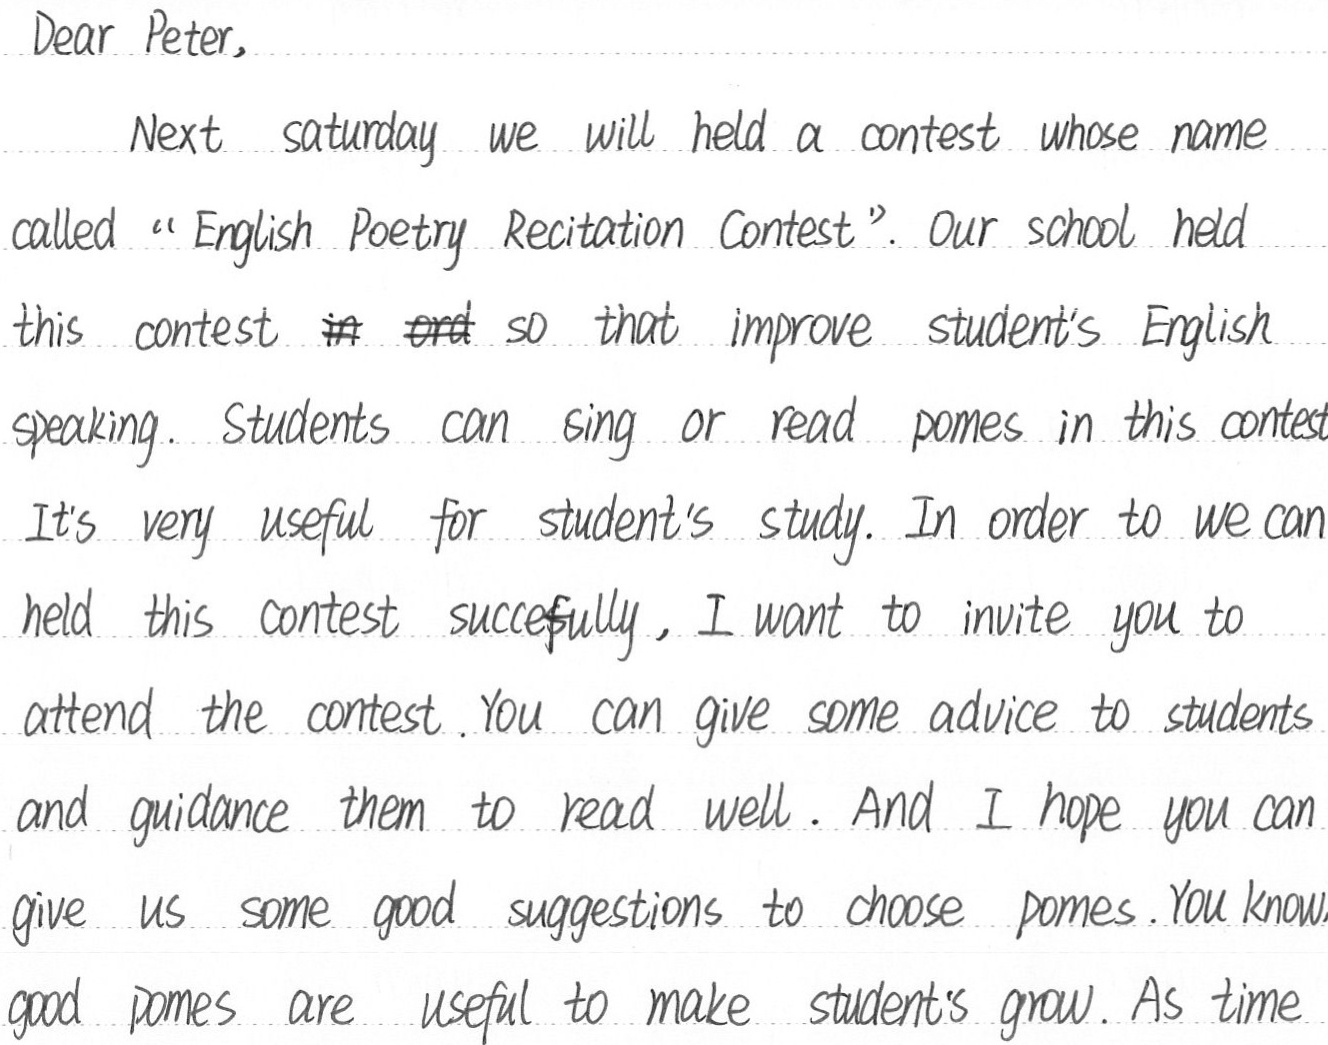 Dear Peter,
Next saturday we will held a contest whose name
called “English Poetry Recitation Contest”. Our school held
this contest in ord so that improve student's English
speaking. Students can sing or read pomes in this contest
It's very useful for student's study. In order to we can
held this contest succefully, I want to invite you to
attend the contest. You can give some advice to students
and guidance them to read well. And I hope you can
give us some good suggestions to choose pomes. You know,
good pomes are useful to make student's grow. As time